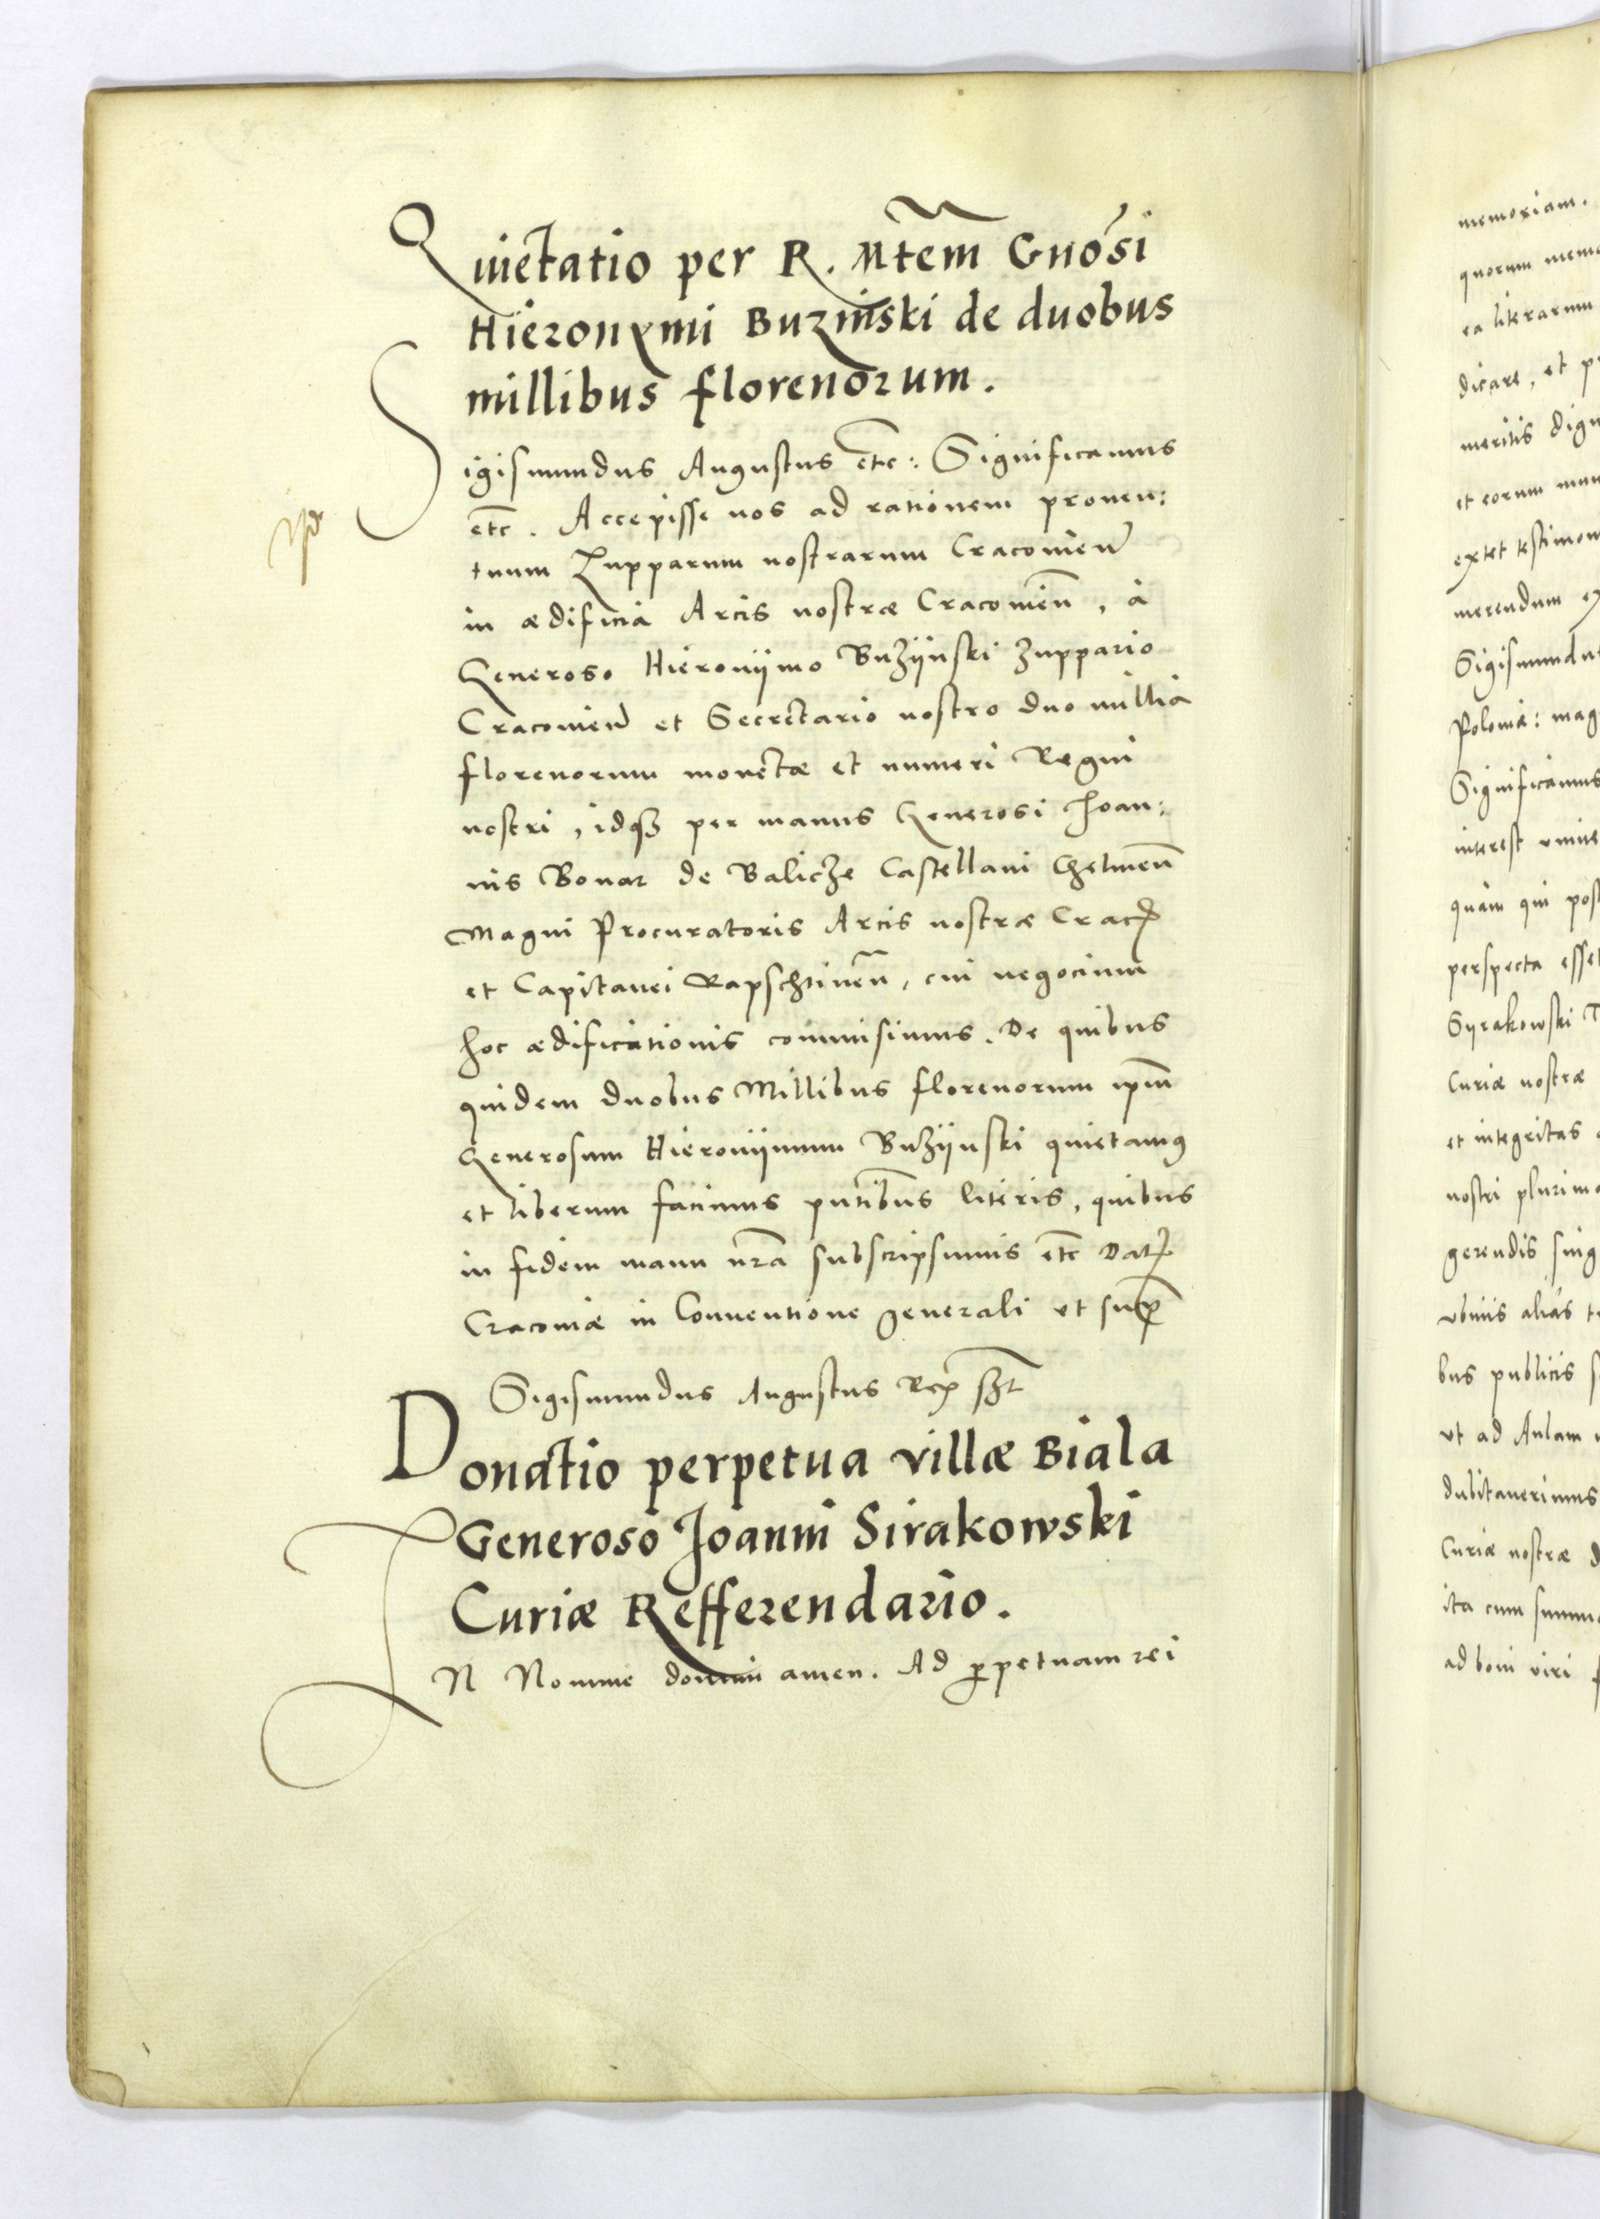 Quietatio per R. Mtem Gnosi
Hieronymi Buzinski de duobus
millibus florenorum.
Sigismundus Augustus etc: Significamus
etc. Accepisse nos ad rationem proven:
tuum Zupparum nostrarum Cracovien
in ædificia Arcis nostræ Cracovien, à
Generoso Hieronijmo Buzijnski Zuppario
Cracovien et Secretario nostro duo millia
florenorum monetæ et numeri Regni
nostri, idqz per manus Generosi Joan:
nis Bonar de Balicze Castellani Chelmen
Magni Procuratoris Arcis nostræ Crac
et Capitanei Rapschtinen, cui negocium
hoc ædificationis commisimus. De quibus
quidem duobus Millibus florenorum ipm
Generosum Hieronijmum Buzijnski quietamus
et liberum facimus pntibus literis, quibus
in fidem manu nra subscripsimus etc Dat
Cracoviæ in Conventione generali ut sup
Sigismundus Augustus Rex sst
Donatio perpetua villæ Biala
Generoso Joanni Sirakowski
Curiæ Refferendario.
IN Nomine domini amen. Ad perpetuam rei
memoriam.
quorum
ea literarum
dicare, et
meritis
et eorum
extet
merendum
Sigismundus
Poloniæ:
Significamus
interest
quam qui
perspecta
Syrakowski
Curiæ nostræ
et integritas
nostri
gerendis
alias
bus publicis
ut ad Aulam
dubitaverimus
Curiæ nostræ
ita cum
ad boni viri